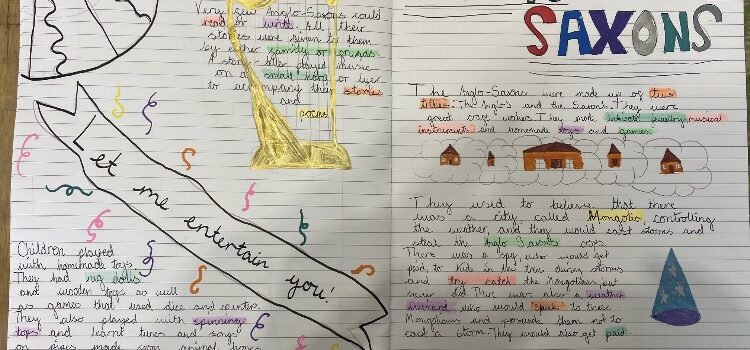 Very few Anglo-Saxons could
read or write. All their
stories were given to them
by either family or friends.
A story-teller played music
on a small harp or lyer
to accompany their stories
and
poems
Let me entertain you!
Children played
with homemade toys.
They had rag dolls
and wooden toys as well
as games that used dice and counters.
They also played with spinning
tops and learnt tunes and songs
on pipes made from animal bones
SAXONS
The Anglo-Saxons were made up of two
tribes: The Angles and the Saxons. They were
great crops workers. They made jewelry, musical
instruments and homemade toys and games.
They used to believe that there
was a city called Mongolia, controlling
the weather, and they would cast storms and
steal the Anglo Saxons crops.
There was a spy, who would get
paid, to hide in the tree during storms
and try catch the Mongolians but
never did. There was also a weather
wizzard who would speak to these
Mongolians and persuade them not to
cast a storm. They would also get paid